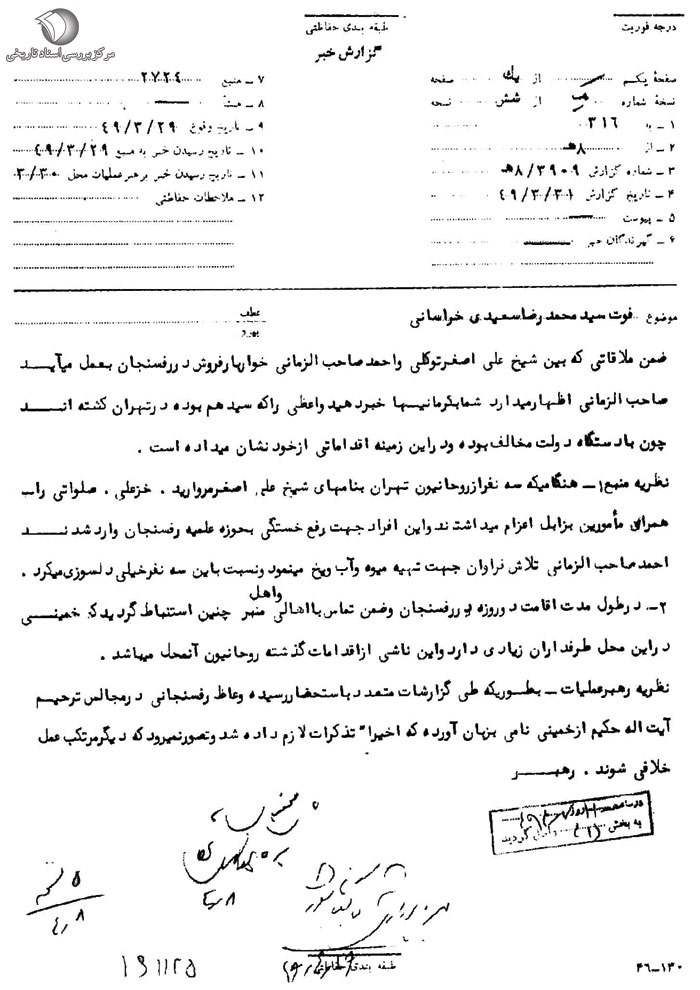 مرکز بررسی اسناد تاریخی
درجه فوریت
طبقه بندی حفاظتی
گزارش خبر
صفحهٔ یکم از یک صفحه
نسخهٔ شماره از شش نسخه
۱ـ به ۳۱۶
۲ـ از ۸ﻫ
۳ـ شماره گزارش ۸/۳۹۰۹ﻫ
۴ـ تاریخ گزارش ۴۹/۳/۳۱
۵ـ پیوست
۶ـ گیرندگان خبر
۷ـ منبع ۲۷۲۴
۸ـ منشأ
۹ـ تاریخ وقوع ۴۹/۳/۲۹
۱۰ـ تاریخ رسیدن خبر به منبع ۴۹/۳/۲۹
۱۱ـ تاریخ رسیدن خبر برهبر عملیات محل ۳/۳۰
۱۲ـ ملاحظات حفاظتی
موضوع فوت سید محمد رضا سعیدی خراسانی
عطف
پیرو
ضمن ملاقاتی که بین شیخ علی اصغر توکلی واحمد صاحب الزمانی خواربارفروش در رفسنجان بعمل میآید
صاحب الزمانی اظهار میدارد شما بکرمانیها خبر دهید واعظی را که سید هم بوده در تهران کشته اند
چون با دستگاه دولت مخالف بوده ودر این زمینه اقداماتی از خود نشان میداده است .
نظریه منبع ۱ـ هنگامیکه سه نفر از روحانیون تهران بنامهای شیخ علی اصغر مروارید . خزعلی . صلواتی را
همرای مأمورین بزابل اعزام میداشتند واین افراد جهت رفع خستگی بحوزه علمیه رفسنجان وارد شدند
احمد صاحب الزمانی تلاش فراوان جهت تهیه میوه وآب ویخ مینمود ونسبت باین سه نفر خیلی دلسوزی میکرد .
۲ـ در طول مدت اقامت دو روزه در رفسنجان وضمن تماس با اهالی واهل منبر چنین استنباط گردید که خمینی
در این محل طرفداران زیادی دارد واین ناشی از اقدامات گذشته روحانیون آنمحل میباشد .
نظریه رهبر عملیات ـ بطوریکه طی گزارشات متعدد باستحضار رسیده وعاظ رفسنجانی در مجالس ترحیم
آیت اله حکیم از خمینی نامی بزبان آورده که اخیراً تذکرات لازم داده شد وتصور نمیرود که دیگر مرتکب عمل
خلافی شوند . رهبر
به بخش گردید
۸
۱۹۱۱۲۵
طبقه بندی حفاظتی
۴۶ـ۱۳۰